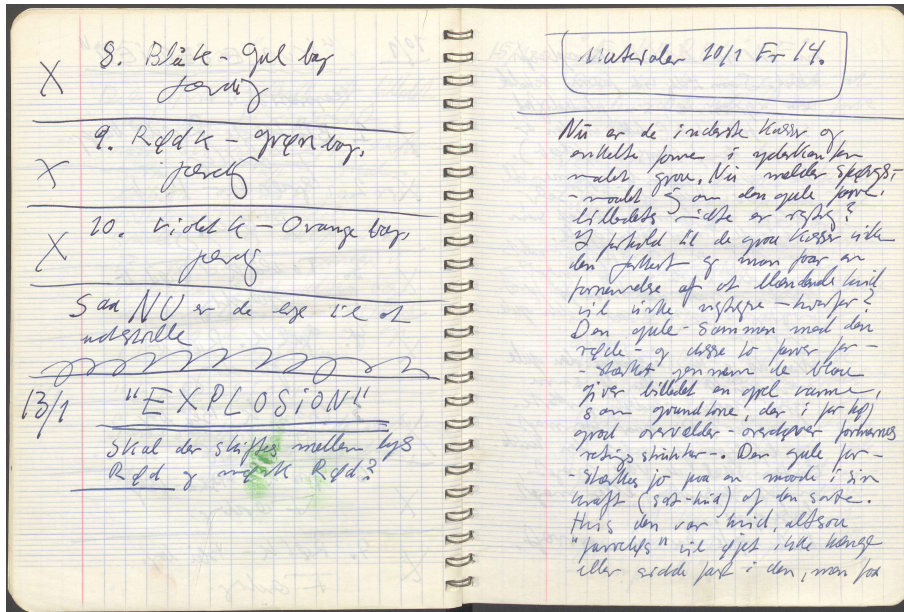 X 8. Blåt K - Gul bag
færdig
X 9. Rød K - Grøn bag.
færdig
X 10. Violet K - Orange bag.
færdig
Saa NU er de lige til at
udstille
13/1 "EXPLOSION"
Skal der skiftes mellem lys
Rød og mørk Rød?
Materialer 10/1 Fr 14.
Nu er de inderste Kasser og
enkelte former i yderkanten
malet graa. Nu melder spørgs-
-maalet sig om den gule farve i
billedets midte er rigtig?
I forhold til de graa Kasser virker
den og man faar en
fornemmelse af at blændende hvid
vil virke rigtigere - hvorfor?
Den gule - sammen med den
røde - og disse to farver for-
-stærket gennem de blaa
giver billedet en gul varme,
som grundtone, der i for høj
grad overvælder - overdøver formernes
- . Den gule for-
-stærkes jo paa en maade i sin
kraft (sort-hvid) af den sorte.
Hvis den var hvid, altsaa
"farveløs" vil øjet ikke hænge
eller sidde fast i den, man faa